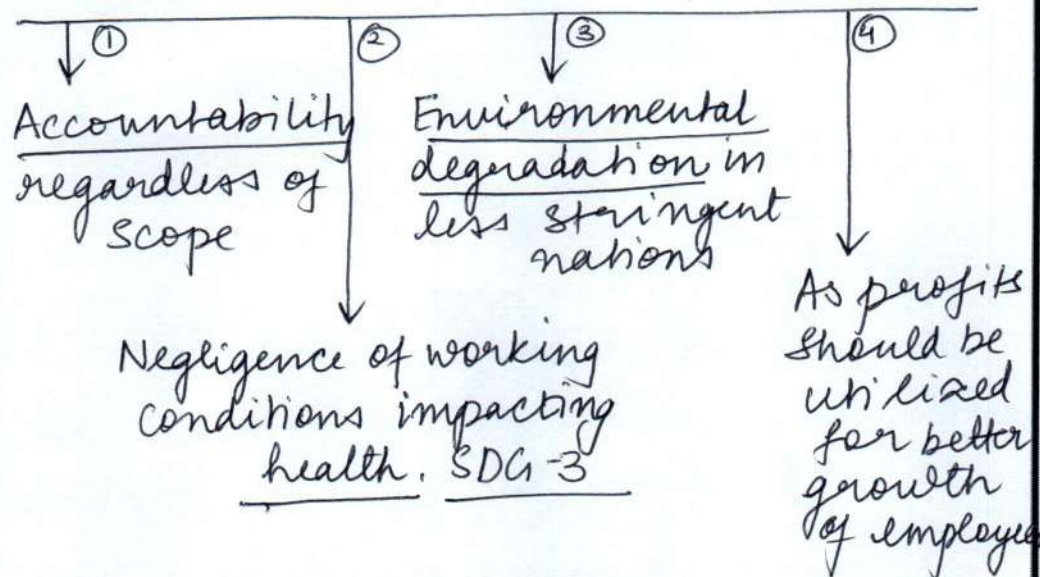 ①
Accountability
regardless of
scope
②
Negligence of working
conditions impacting
health. SDG-3
③
Environmental
degradation in
less stringent
nations
④
As profits
should be
utilized
for better
growth
of employees